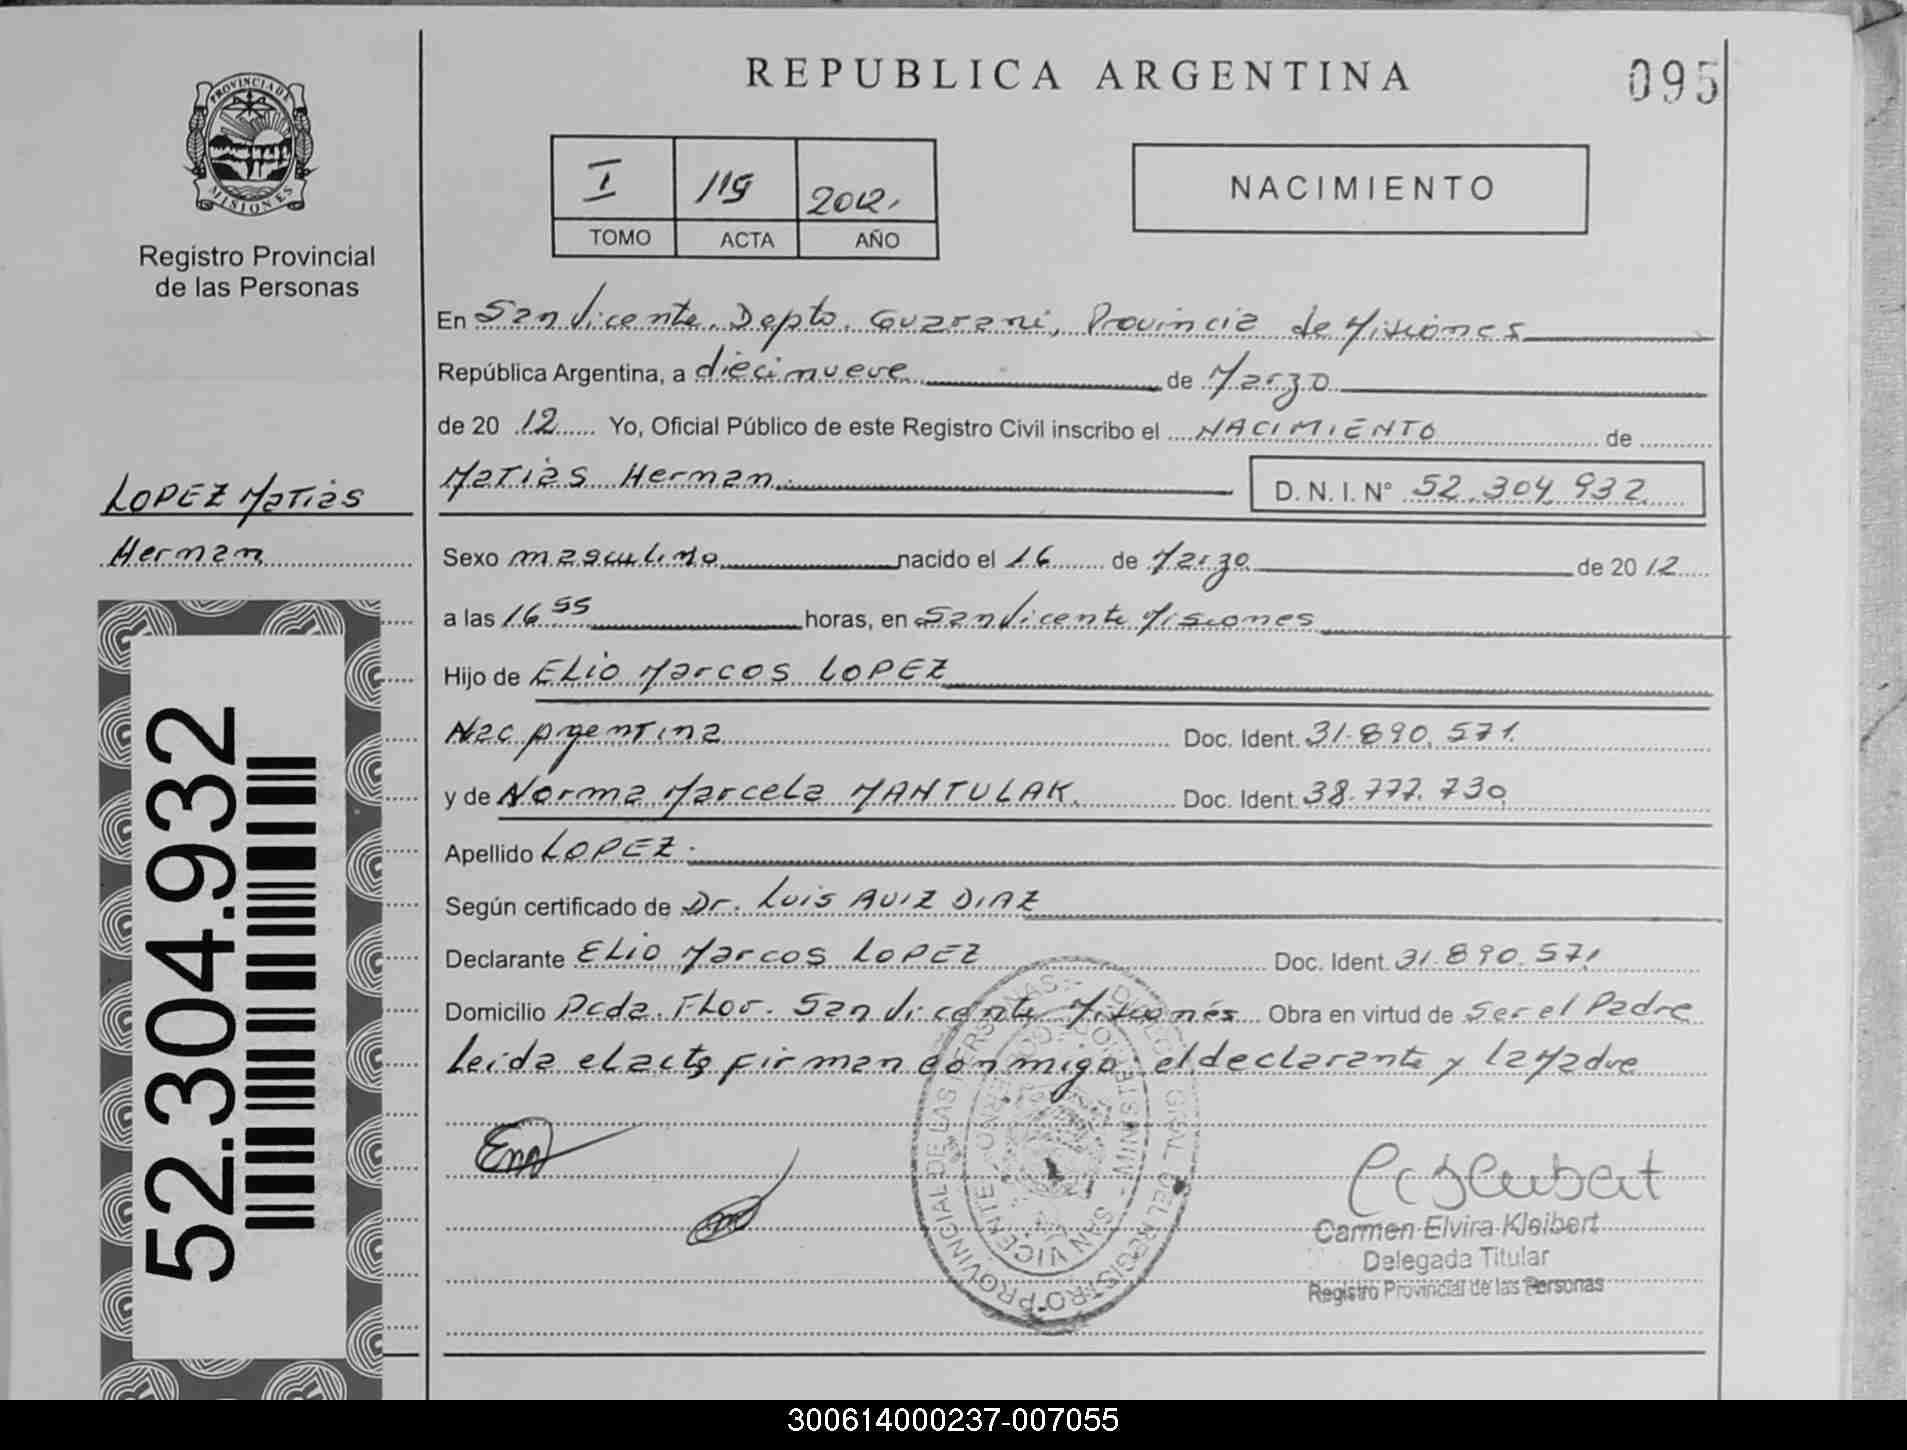 REPUBLICA ARGENTINA
095
PROVINCIA DE
MISIONES
Registro Provincial
de las Personas
I 119 2012.
TOMO ACTA AÑO
NACIMIENTO
En San Vicente, Depto. Guarani, Provincia de Misiones
República Argentina, a diecinueve de Marzo
de 2012 Yo, Oficial Público de este Registro Civil inscribo el NACIMIENTO de
Matias Herman. D. N. I. N° 52.304.932
LOPEZ Matias
Herman
Sexo masculino nacido el 16 de Marzo de 2012
a las 16 55 horas, en San Vicente Misiones
Hijo de ELIO Marcos LOPEZ
Nac Argentina Doc. Ident. 31.890.571.
y de Norma Marcela MANTULAK. Doc. Ident. 38.777.730
Apellido LOPEZ.
Según certificado de Dr. Luis RUIZ DIAZ
Declarante ELIO Marcos LOPEZ Doc. Ident. 31.890.571
Domicilio Pcda. Flor. San Vicente Misiones Obra en virtud de Ser el Padre
Leida el acta firman conmigo el declarante y la Madre
52.304.932
Carmen Elvira Kleibert
Delegada Titular
Registro Provincial de las Personas
300614000237-007055